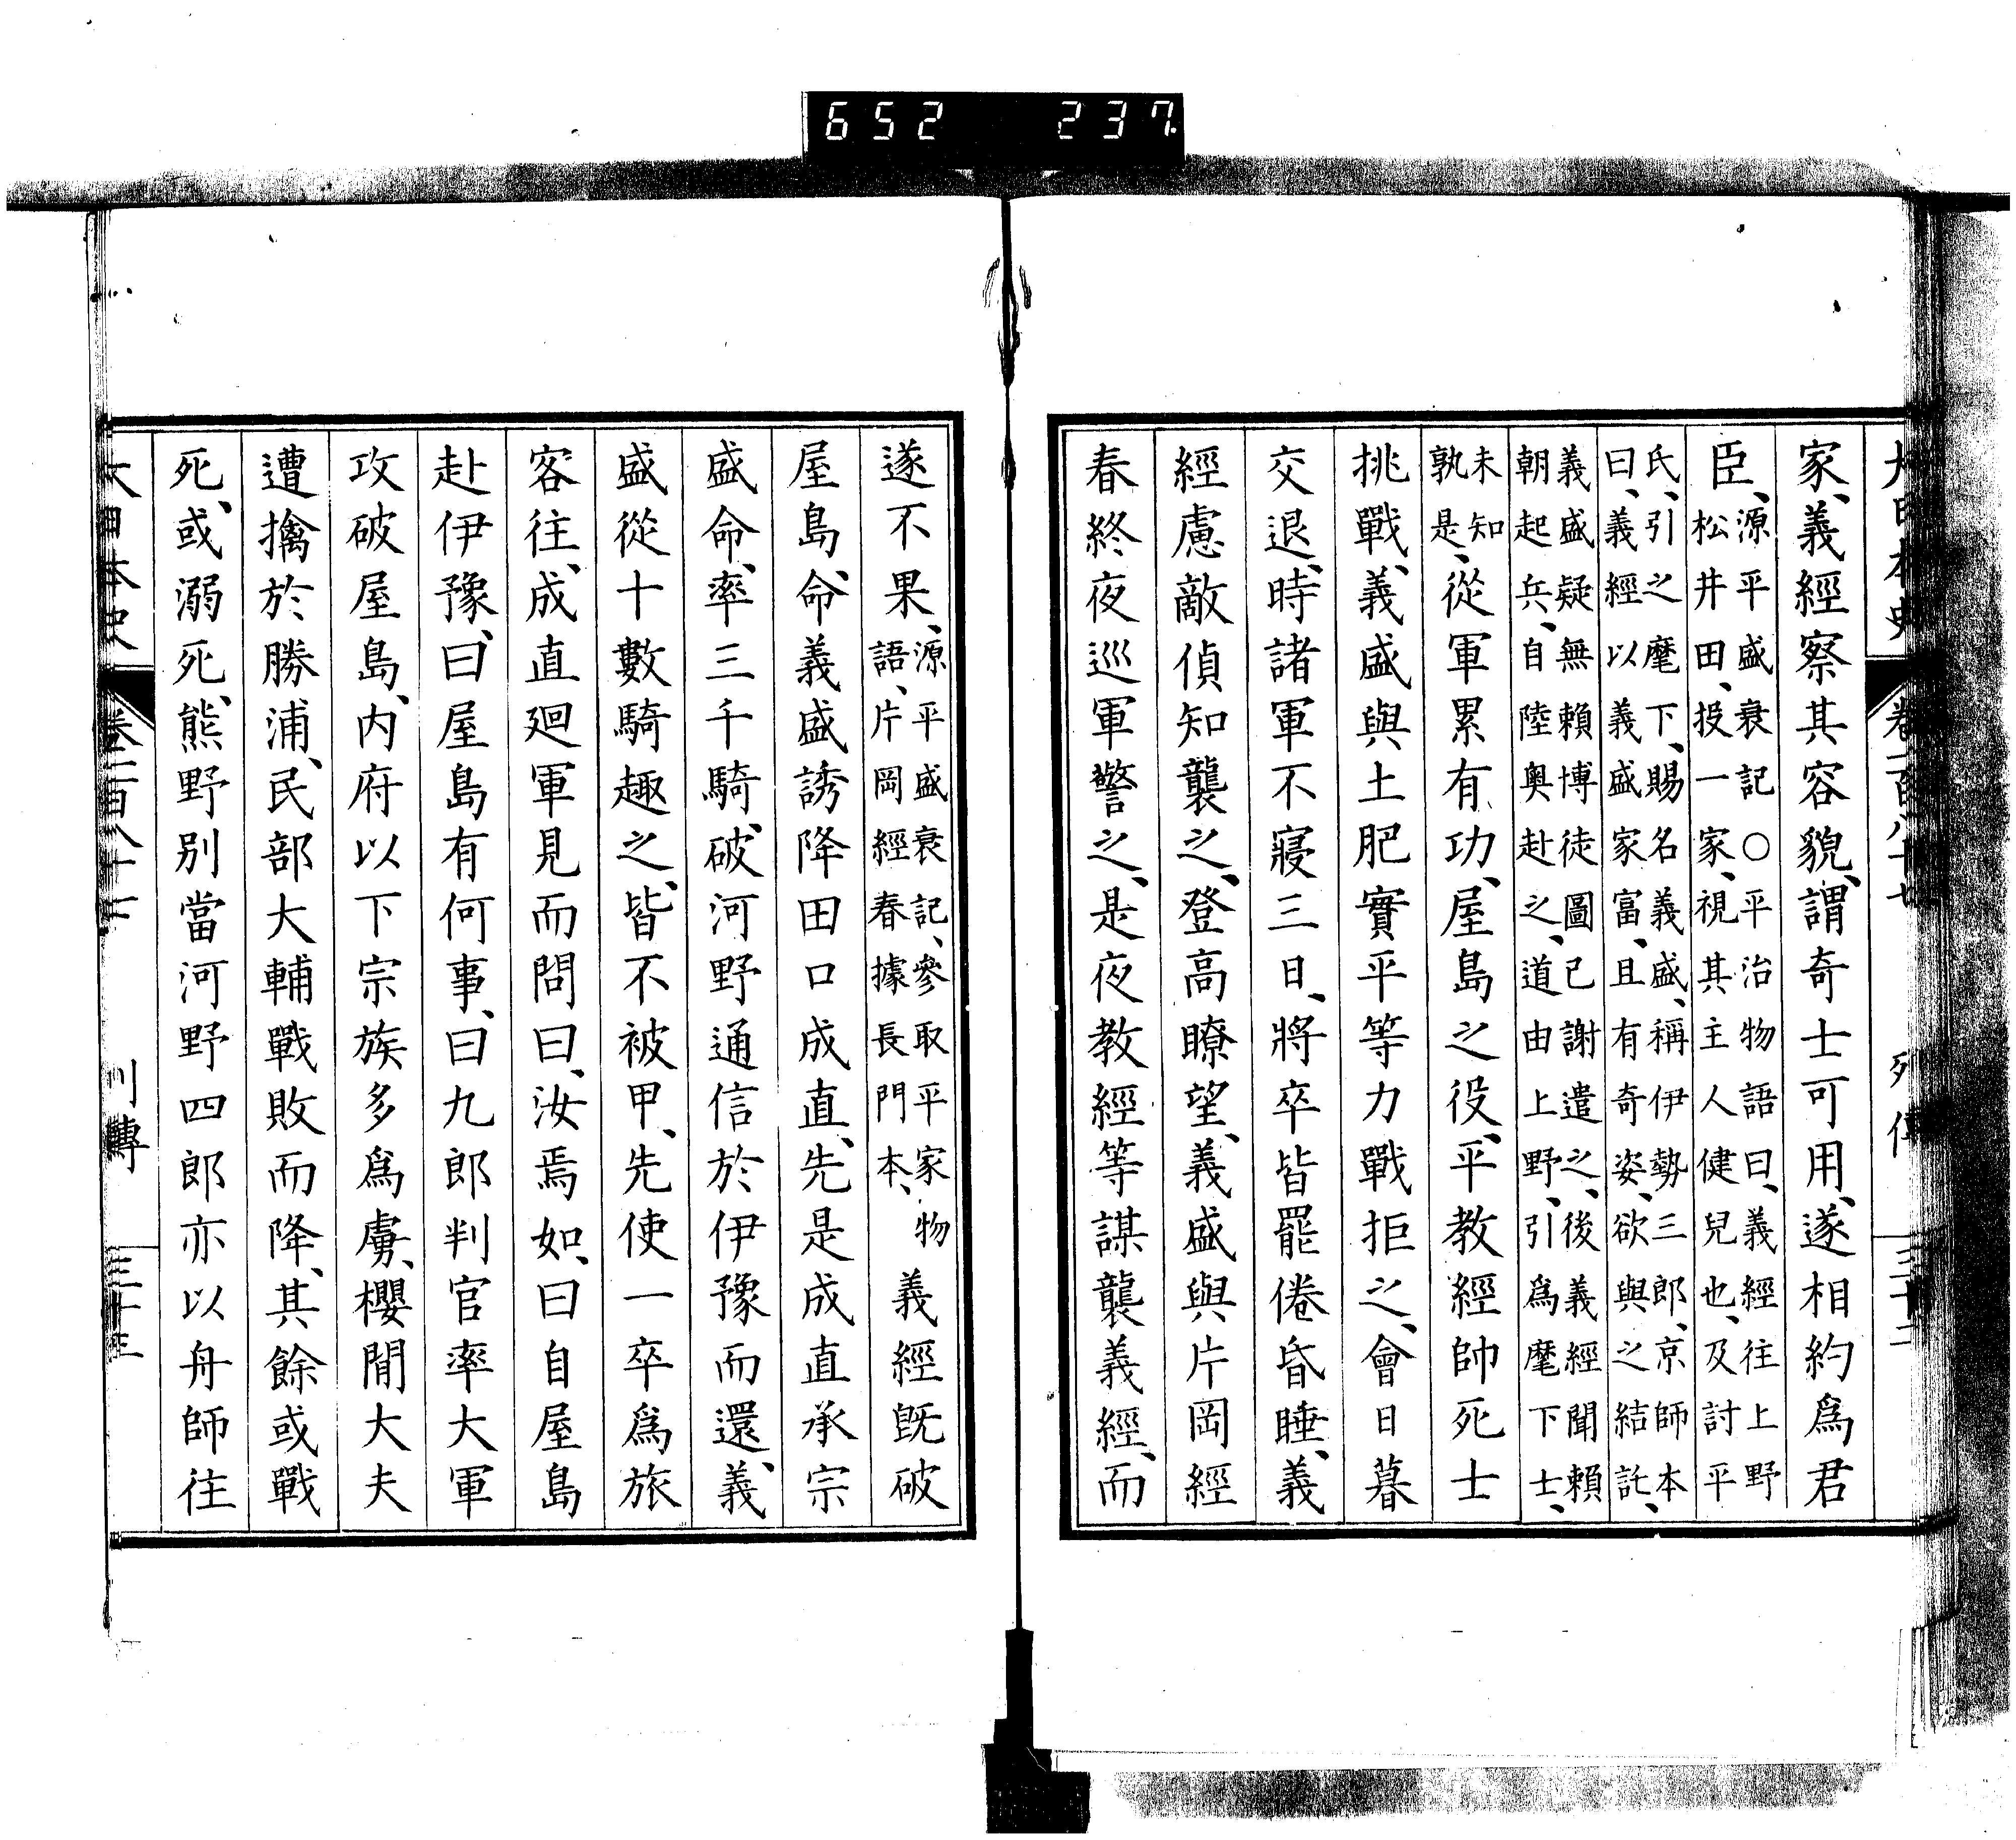 652 237
大日本史 卷一百八十七 列傳 三十二
家、義經察其容貌、謂奇士可用、遂相約爲君
臣、源平盛衰記○平治物語曰、義經往上野
松井田、投一家、視其主人健兒也、及討平
氏、引之麾下、賜名義盛、稱伊勢三郎、京師本
曰、義經以義盛家富、且有奇姿、欲與之結託、
義盛疑無賴博徒圖己謝遣之、後義經聞賴
朝起兵、自陸奥赴之、道由上野、引爲麾下士、
未知
孰是、從軍累有功、屋島之役、平教經帥死士
挑戰、義盛與土肥實平等力戰拒之、會日暮
交退、時諸軍不寢三日、將卒皆罷倦昏睡、義
經慮敵偵知襲之、登高瞭望、義盛與片岡經
春終夜巡軍警之、是夜教經等謀襲義經、而
遂不果、源平盛衰記、參取平家物
語、片岡經春據長門本、義經旣破
屋島、命義盛誘降田口成直、先是成直承宗
盛命、率三千騎、破河野通信於伊豫而還、義
盛從十數騎趣之、皆不被甲、先使一卒爲旅
客往、成直廻軍見而問曰、汝焉如、曰自屋島
赴伊豫、曰屋島有何事、曰九郎判官率大軍
攻破屋島、内府以下宗族多爲虜、櫻間大夫
遭擒於勝浦、民部大輔戰敗而降、其餘或戰
死、或溺死、熊野別當河野四郎亦以舟師往
大日本史 卷一百八十七 列傳 三十三